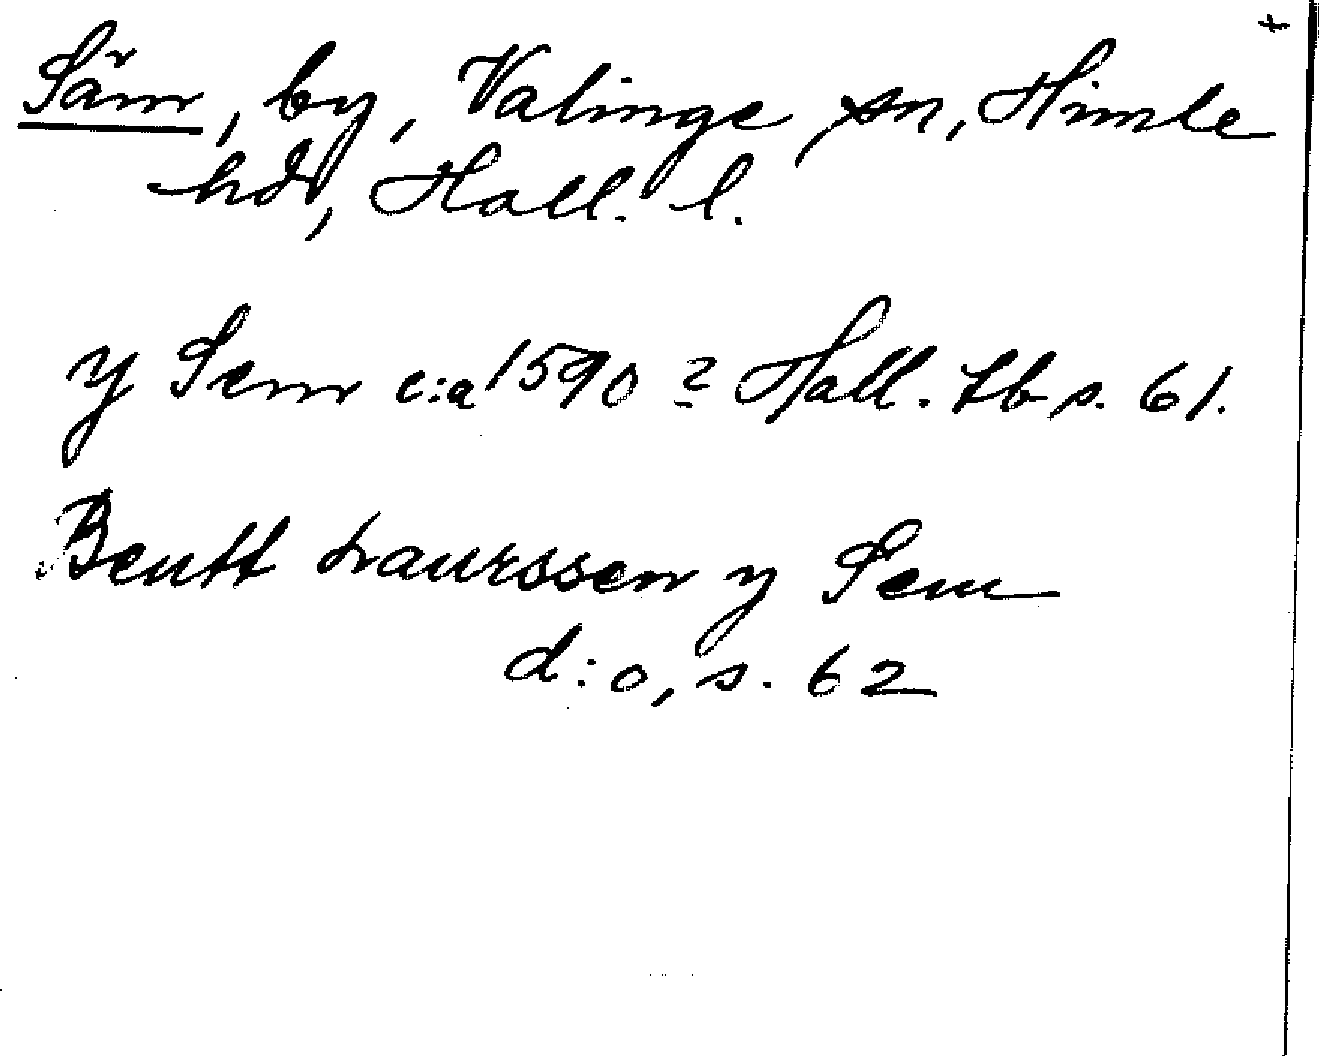 +
Säm, by, Valinge sn, Himle
hd, Hall. l.
y Sem c:a 1590? Hall. tb s. 61.
Bentt Laurssen y Sem
d:o, s. 62